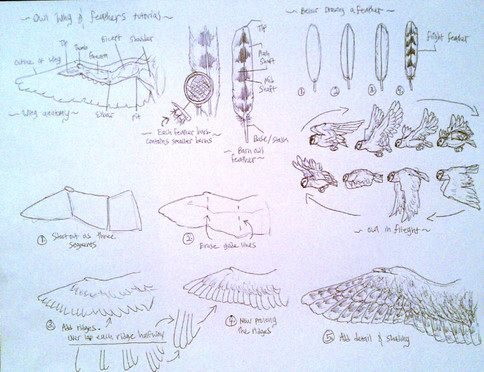 ~ Owl Wing & feathers tutorial ~
~ Basic Drawing a feather ~
Tip
Thumb
Forearm
Bicept
Shoulder
outline of wing
Elbow
Pit
~ Wing anatomy ~
Tip
Shaft
Shaft
Base/
~ Each feather barb
contains smaller barbs
~ Barn owl
feather ~
Flight feather
①
②
③
④
~ owl in flieght ~
① Start out as three
segments
② Erase guide lines
③ Add ridges.
over lap each ridge halfway
④ Now
the ridges
⑤ Add detail & shading